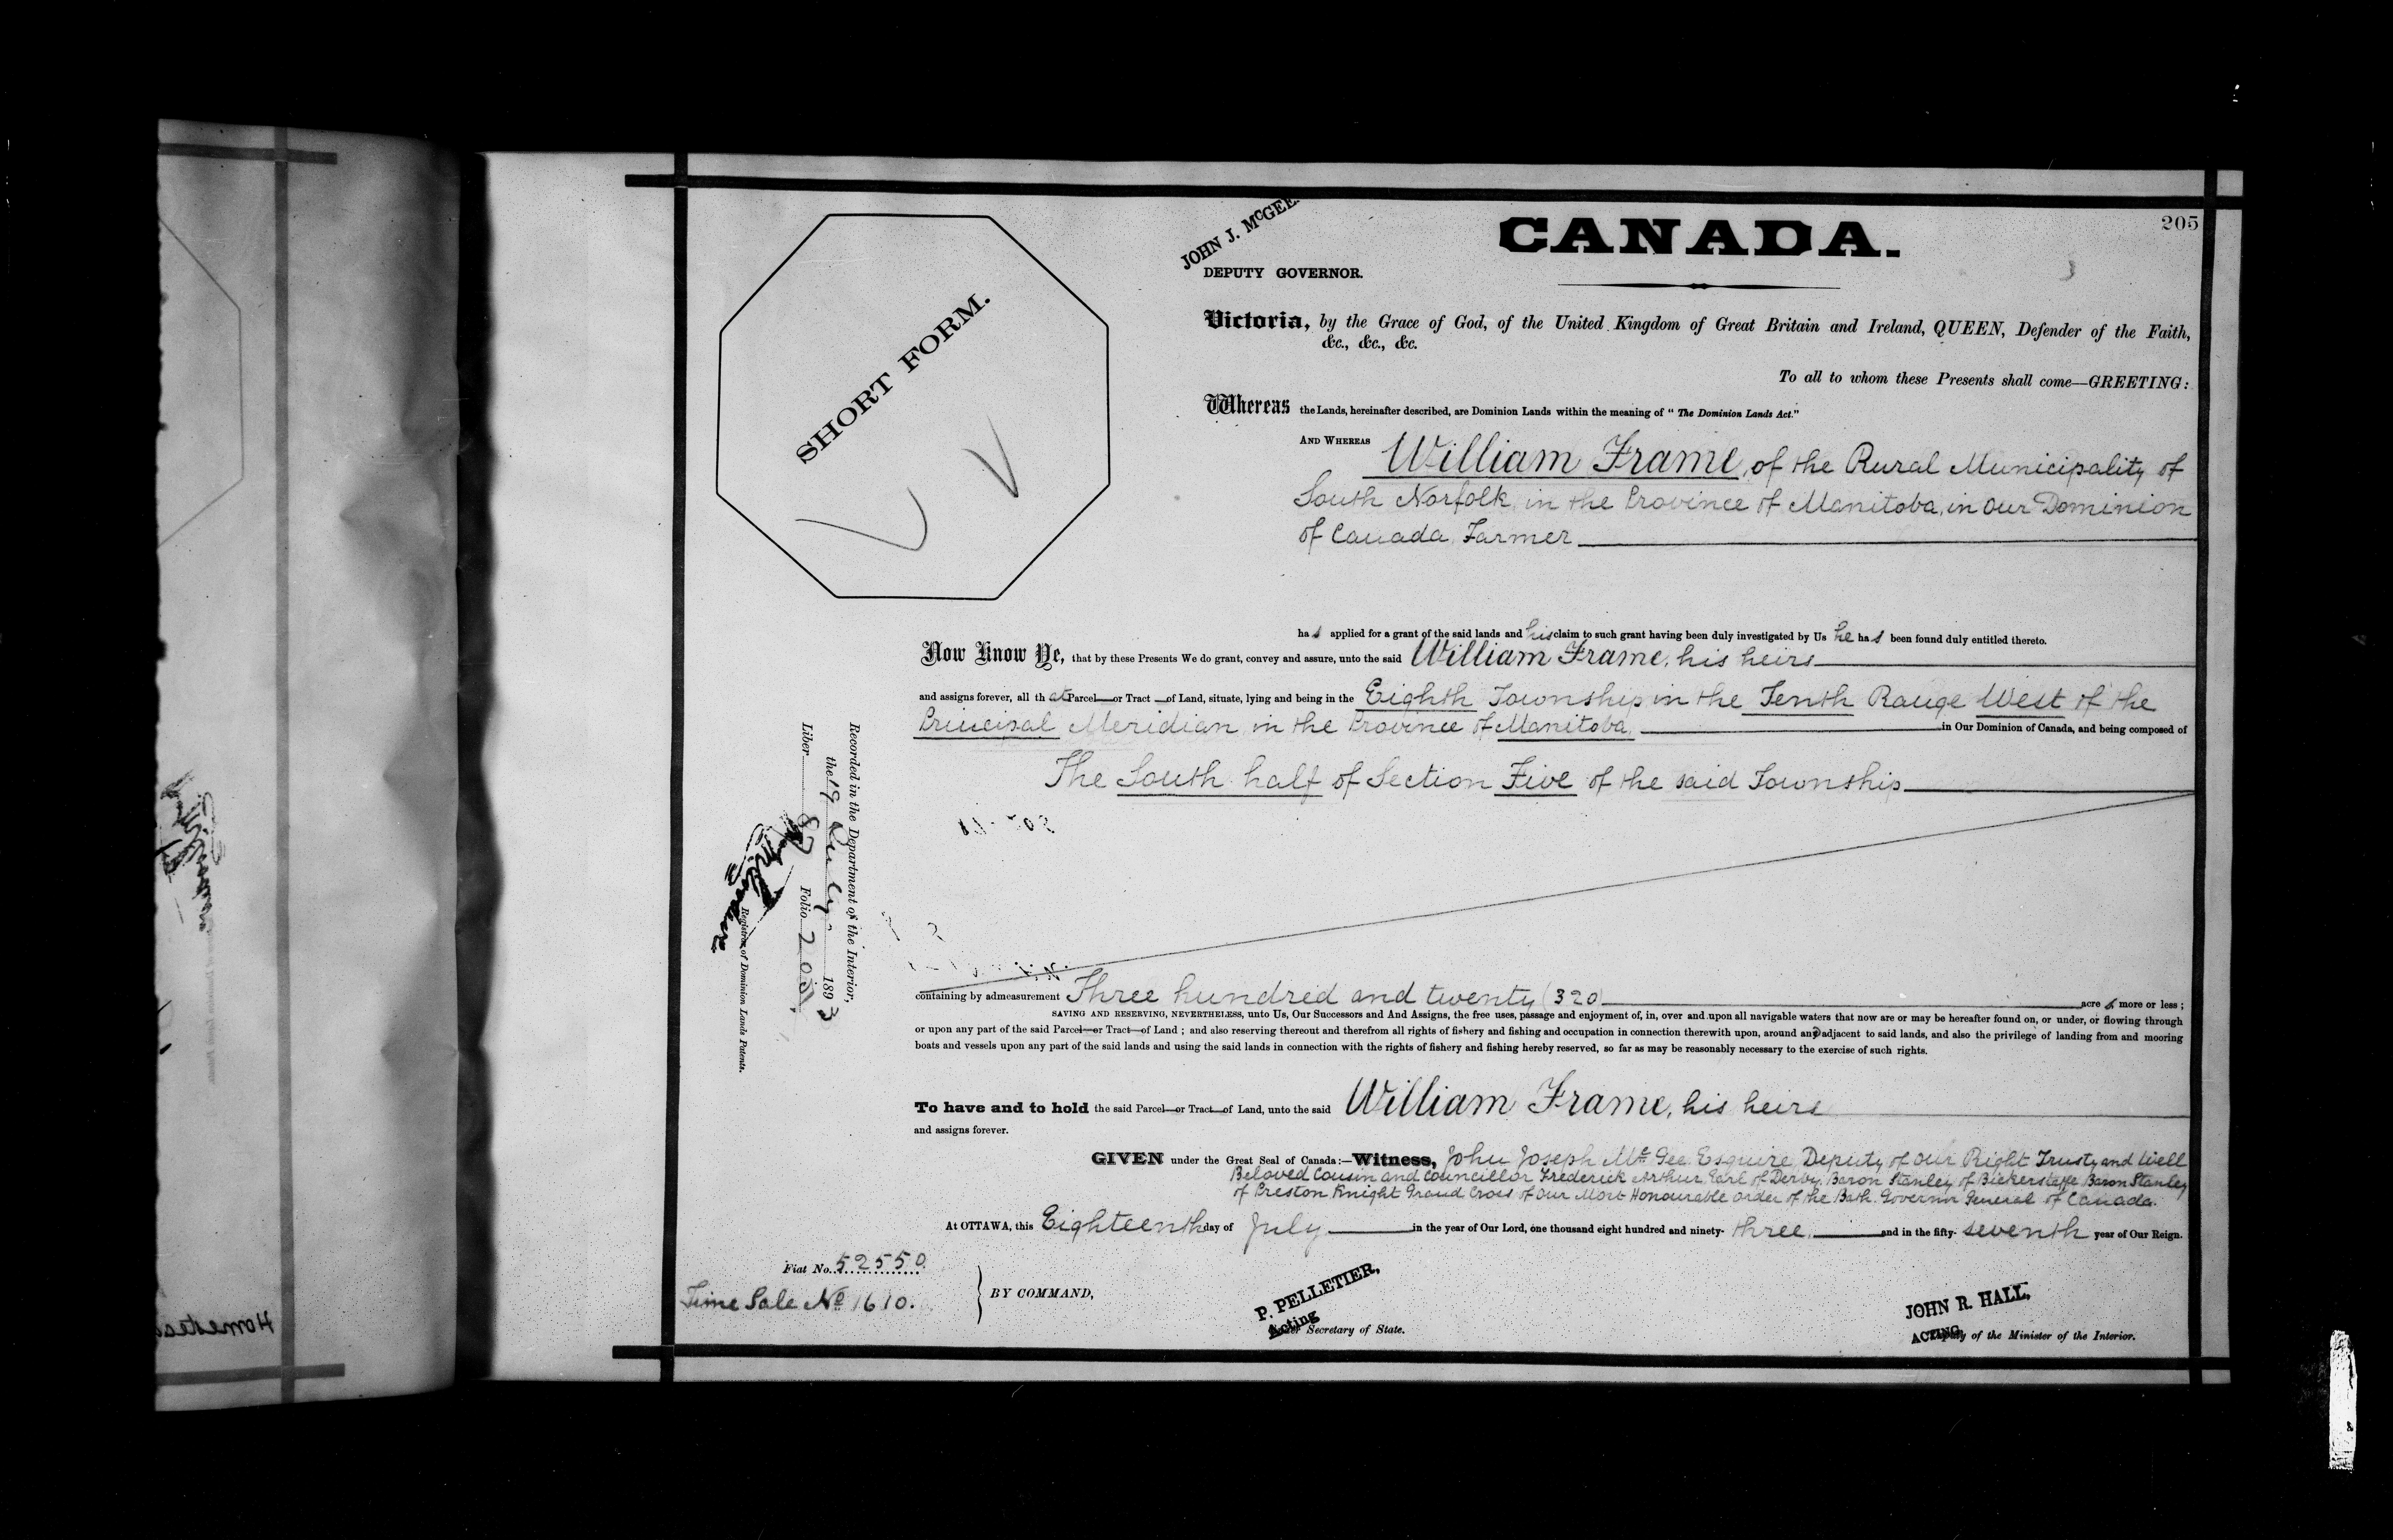 205
CANADA.
JOHN J. McGEE.
DEPUTY GOVERNOR.
SHORT FORM.
Victoria, by the Grace of God, of the United Kingdom of Great Britain and Ireland, QUEEN, Defender of the Faith,
&c., &c., &c.
To all to whom these Presents shall come—GREETING:
Whereas the Lands, hereinafter described, are Dominion Lands within the meaning of "The Dominion Lands Act."
AND WHEREAS William Frame, of the Rural Municipality of
South Norfolk, in the Province of Manitoba, in Our Dominion
of Canada, Farmer
has applied for a grant of the said lands and his claim to such grant having been duly investigated by Us he has been found duly entitled thereto.
Now Know Ye, that by these Presents We do grant, convey and assure, unto the said William Frame, his heirs
and assigns forever, all that Parcel—or Tract—of Land, situate, lying and being in the Eighth Township in the Tenth Range West of the
Principal Meridian in the Province of Manitoba, in Our Dominion of Canada, and being composed of
The South half of Section Five of the said Township
Recorded in the Department of the Interior,
the 19 July 1893
Liber 87 Folio 205
Registrar of Dominion Lands Patents.
containing by admeasurement Three hundred and twenty (320) acres more or less;
SAVING AND RESERVING, NEVERTHELESS, unto Us, Our Successors and And Assigns, the free uses, passage and enjoyment of, in, over and upon all navigable waters that now are or may be hereafter found on, or under, or flowing through
or upon any part of the said Parcel—or Tract—of Land; and also reserving thereout and therefrom all rights of fishery and fishing and occupation in connection therewith upon, around and adjacent to said lands, and also the privilege of landing from and mooring
boats and vessels upon any part of the said lands and using the said lands in connection with the rights of fishery and fishing hereby reserved, so far as may be reasonably necessary to the exercise of such rights.
To have and to hold the said Parcel—or Tract—of Land, unto the said William Frame, his heirs
and assigns forever.
GIVEN under the Great Seal of Canada:—Witness, John Joseph McGee Esquire, Deputy of Our Right Trusty and Well
Beloved Cousin and Councillor Frederick Arthur, Earl of Derby, Baron Stanley of Bickerstaffe, Baron Stanley
of Preston Knight Grand Cross of Our Most Honourable Order of the Bath. Governor General of Canada.
At OTTAWA, this Eighteenth day of July in the year of Our Lord, one thousand eight hundred and ninety-three, and in the fifty-seventh year of Our Reign.
Fiat No. 52550.
Time Sale No 1610.
BY COMMAND,
P. PELLETIER,
Acting
Under Secretary of State.
JOHN R. HALL,
ACTING
Deputy of the Minister of the Interior.
Homestead